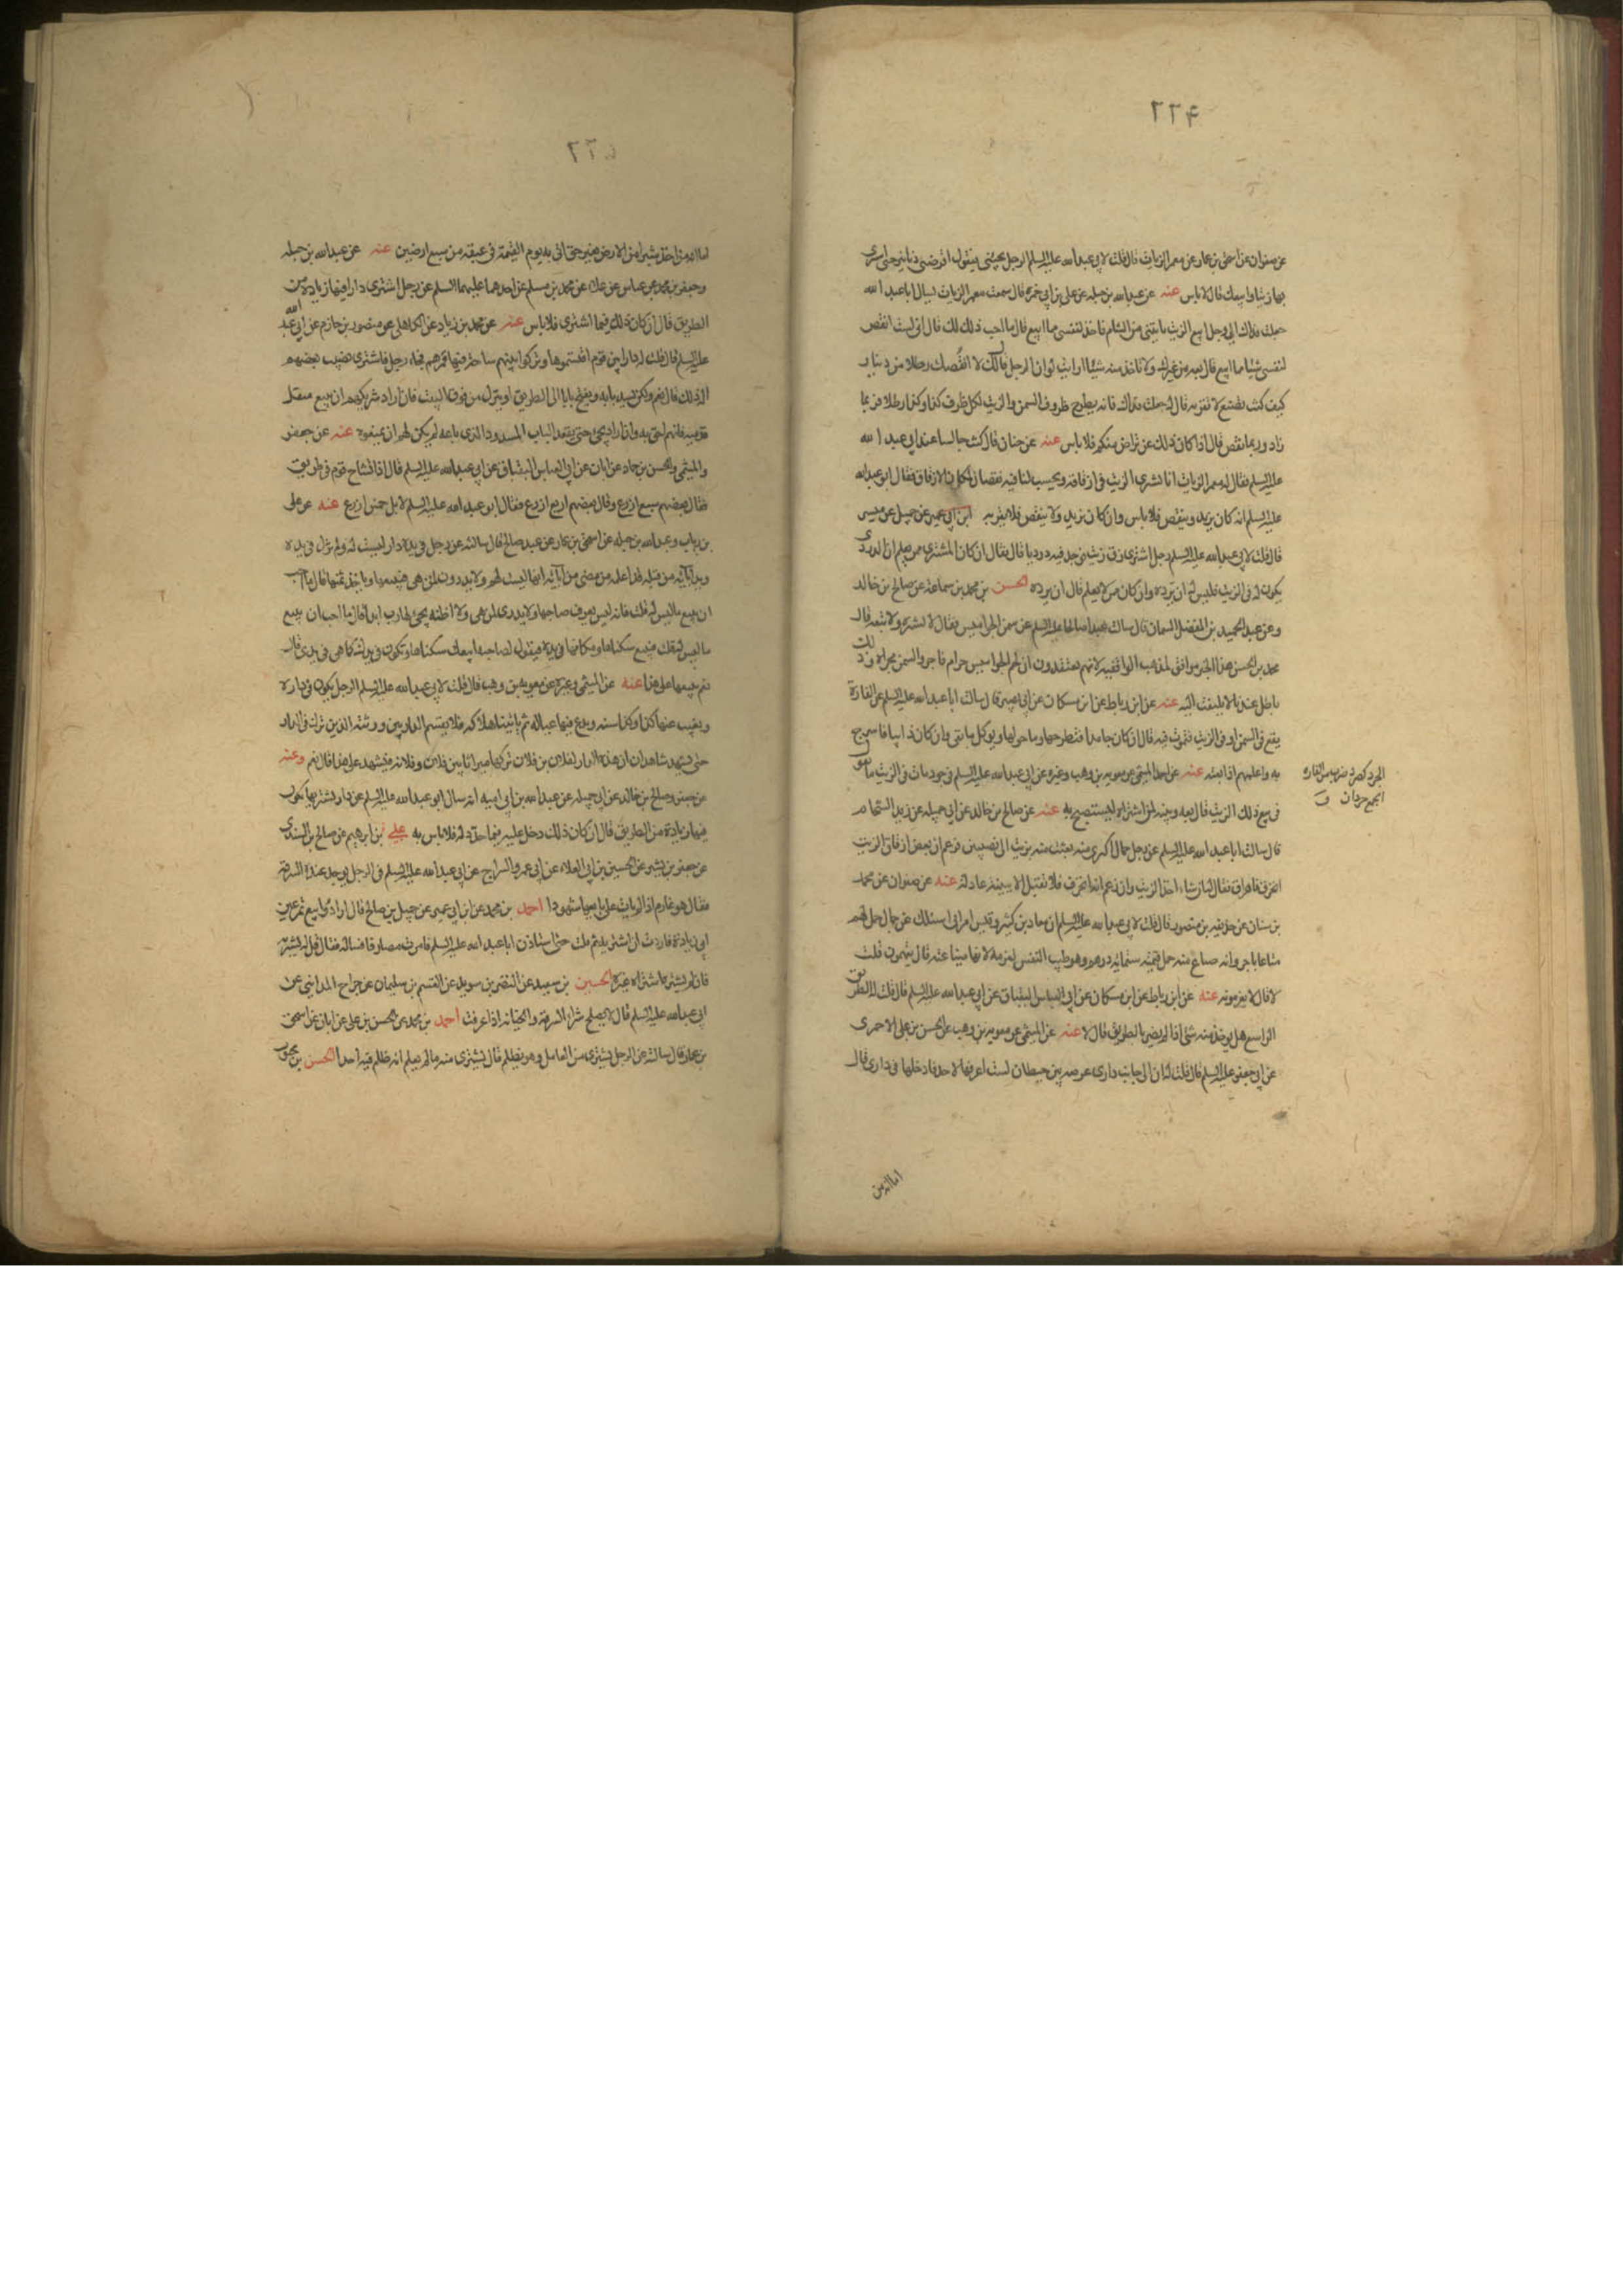 ٢٢٤
عن صفوان عن اسحق بن عمار عن معمر الزيات قال قلت لابي عبدالله عليه السلم الرجل يجيئني فيقول اقرضني دنانير حتى اشتري
بها زيتا وابيعك قال لا باس عنه عن عبدالله بن جبله عن علي بن ابي حمزه قال سمعت معمر الزيات يسال ابا عبدالله
جعلت فداك اني رجل ابيع الزيت ياتيني من الشام فاخذ لنفسي مما ابيع قال ما احب ذلك لك قال اني لست انقص
لنفسي شيئا مما ابيع قال بعه من غيرك ولا تاخذ منه شيئا ارايت لو ان الرجل قال لك لا انقصك رطلا من دينار
كيف كنت تصنع لا تقربه قال له جعلت فداك فانه يطرح ظروف السمن والزيت لكل ظرف كذا وكذا رطلا فربما
زاد وربما نقص قال اذا كان ذلك عن تراض منكم فلا باس عنه عن حنان قال كنت جالسا عند ابي عبدالله
عليه السلم فقال له معمر الزيات انا نشتري الزيت في ازقاقه ويحسب لنا فيه نقصان لمكان الازقاق فقال ابو عبدالله
عليه السلم انه كان يزيد وينقص فلا باس وان كان يزيد ولا ينقص فلا تقربه ابن ابي عمير عن جميل عن ميسر
قال قلت لابي عبدالله عليه السلم رجل اشترى زق زيت فوجد فيه درديا قال فقال ان كان المشتري ممن يعلم ان الدردي
يكون له في الزيت فليس له ان يرده وان كان ممن لا يعلم قال ان يرده الحسن بن محمد بن سماعة عن صالح بن خالد
وعن عبد الحميد بن المفضل السمان قال سالت عبدا صالحا عليه السلم عن سمن الجواميس فقال لا تشتره ولا تبعه قال
محمد بن الحسن هذا الخبر موافق لمذهب الواقفيه لانهم يعتقدون ان لحم الجواميس حرام فاجروا السمن مجراه وذلك
باطل عندنا لا يلتفت اليه عنه عن ابن رباط عن ابن مسكان عن ابي بصير قال سالت ابا عبدالله عليه السلم عن الفارة
يقع في السمن او في الزيت فتموت فيه قال ان كان جامدا فتطرحها وما حولها ويوكل ما بقي وان كان ذايبا فاسرج
به واعلمهم اذا بعته عنه عن احمد الميثمي عن معويه بن وهب وغيره عن ابي عبدالله عليه السلم في جرد مات في الزيت ما تقول
في بيع ذلك الزيت قال بعه وبينه لمن اشتراه ليستصبح به عنه عن صالح بن خالد عن ابي جميله عن زيد الشحام
قال سالت ابا عبدالله عليه السلم عن رجل جمال اكترى منه بعث معه بزيت الى نصيبين فزعم ان بعض ازقاق الزيت
انخرق فاهراق فقال انه ان شاء اخذ الزيت وان زعم انه انخرق فلا تقبل الا ببينة عادلة عنه عن صفوان عن محمد
بن سنان عن حذيفه بن منصور قال قلت لابي عبدالله عليه السلم ان معاذ بن كثير وقيس امراني اسئلك عن جمال حمل لهم
متاعا باجر وانه ضاع منه حمل قيمته ستمايه درهم وهو طيب النفس لغرمه لانها صناعته قال يتهمونه قلت
لا قال لا يغرمونه عنه عن ابن رباط عن ابن مسكان عن ابي العباس البقباق عن ابي عبدالله عليه السلم قال قلت له الطريق
الواسع هل يوخذ منه شئ اذا لم يضر بالطريق قال لا عنه عن الميثمي عن معويه بن وهب عن الحسن بن علي الاحمري
عن ابي جعفر عليه السلم قال قلت له ان الى جانب داري عرصه بين حيطان لست اعرفها لاحد فادخلها في داري قال
الجرد كصرد ضرب من الفاره
الجمع جردان ق
اما انه من
٢٢٥
اما انه من اخذ شبرا من الارض بغير حق اتي به يوم القيمة في عنقه من سبع ارضين عنه عن عبدالله بن جبله
وجعفر بن محمد بن عباس عن علاء عن محمد بن مسلم عن احدهما عليهما السلم عن رجل اشترى دارا فيها زيادة من
الطريق قال ان كان ذلك فيما اشترى فلا باس عنه عن محمد بن زياد عن الكاهلي عن منصور بن حازم عن ابي عبد الله
عليه السلم قال قلت له دار بين قوم اقتسموها وتركوا بينهم ساحة فيها ممرهم فجاء رجل فاشترى نصيب بعضهم
اله ذلك قال نعم ولكن يسد بابه ويفتح بابا الى الطريق او ينزل من فوق البيت فان اراد شريكهم ان يبيع منقل
قدميه فانهم احق به وان اراد يجئ حتى يقعد الباب المسدود الذي باعه لم يكن لهم ان يمنعوه عنه عن جعفر
والميثمي والحسن بن حماد عن ابان عن ابي العباس البقباق عن ابي عبدالله عليه السلم قال اذا تشاح قوم في طريق
فقال بعضهم سبع اذرع وقال بعضهم اربع اذرع فقال ابو عبدالله عليه السلم لا بل خمس اذرع عنه عن علي
بن رباب وعبدالله بن جبله عن اسحق بن عمار عن عبد صالح قال سالته عن رجل في يده دار ليست له ولم تزل في يده
ويد آبائه من قبله قد اعلمه من مضى من آبائه انها ليست لهم ولا يدرون لمن هي فيبيعها وياخذ ثمنها قال ما احب
ان يبيع ما ليس له قلت فانه ليس يعرف صاحبها ولا يدري لمن هي ولا اظنه يجئ لها رب ابدا قال ما احب ان يبيع
ما ليس له قلت فيبيع سكناها او مكانها في يده فيقول لصاحبه ابيعك سكناها وتكون في يدك كما هي في يدي قال
نعم يبيعها على هذا عنه عن الميثمي وغيره عن معويه بن وهب قال قلت لابي عبدالله عليه السلم الرجل يكون في داره
ويغيب عنها كذا وكذا سنه ويدع فيها عياله ثم ياتينا هلاكه فلا يقسم الدار بين ورثته الذين ترك في الدار
حتى يشهد شاهدان ان هذه الدار لفلان بن فلان تركها ميراثا بين فلان وفلانه فيشهد على هذا قال نعم وعنه
عن جعفر وصالح بن خالد عن ابي جميله عن عبدالله بن ابي اميه انه سال ابو عبدالله عليه السلم عن دار يشتريها يكون
فيها زيادة من الطريق قال ان كان ذلك دخل عليه فيما حد له فلا باس به علي بن ابرهيم عن صالح بن السندي
عن جعفر بن بشير عن الحسين بن ابي العلاء عن ابي عمر والسراج عن ابي عبدالله عليه السلم في الرجل يوجد عنده السرقة
فقال هو غارم اذا لم يات على بايعها شهودا احمد بن محمد عن ابن ابي عمير عن جميل بن صالح قال ارادوا بيع تمر عين
ابي زيادة فاردت ان اشتريه ثم قلت حتى استاذن ابا عبدالله عليه السلم فامرت مصادفا فساله فقال قل له يشتريه
فان لم يشتره اشتراه غيره الحسين بن سعيد عن النضر بن سويد عن القسم بن سليمان عن جراح المدايني عن
ابي عبدالله عليه السلم قال لا يصلح شراء السرقة والخيانه اذا عرفت احمد بن محمد عن الحسن بن علي عن ابان عن اسحق
بن عمار قال سالته عن الرجل يشتري من العامل وهو يظلم قال يشتري منه ما لم يعلم انه ظلم فيه احدا الحسن بن محبوب